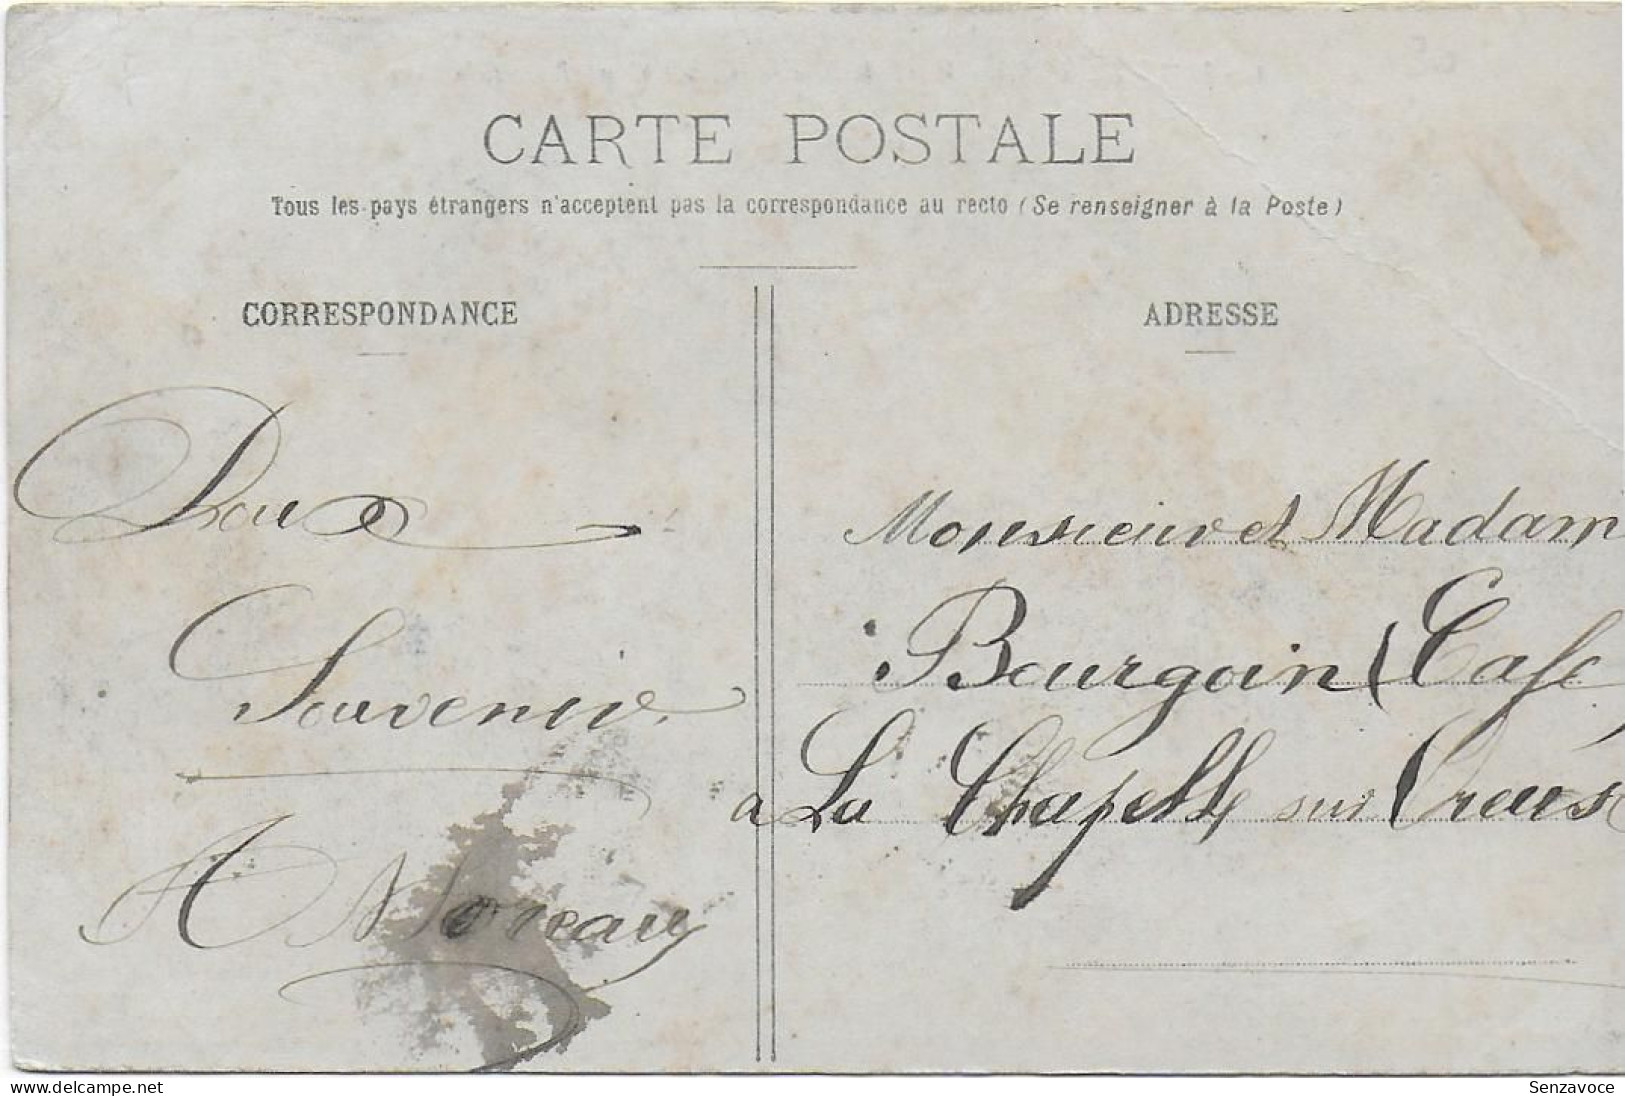 CARTE POSTALE
Tous les pays étrangers n'acceptent pas la correspondance au recto (Se renseigner à la Poste)
CORRESPONDANCE
ADRESSE
Doux
Souvenir
A Moreau
Monsieur et Madam
Bourgoin (Café
a La Chapelle sur Oreuse
delcampe.net
Senzavoce